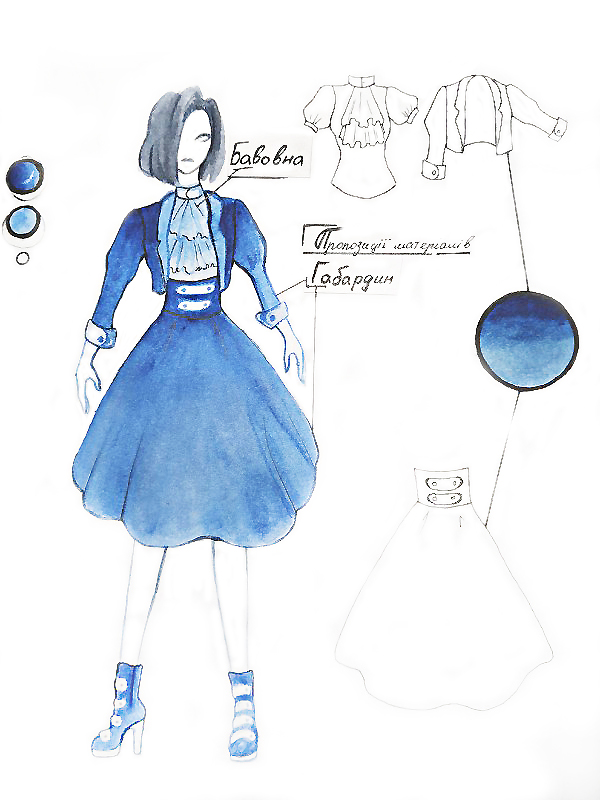 Бавовна
Пропозиції матеріалів
Габардин